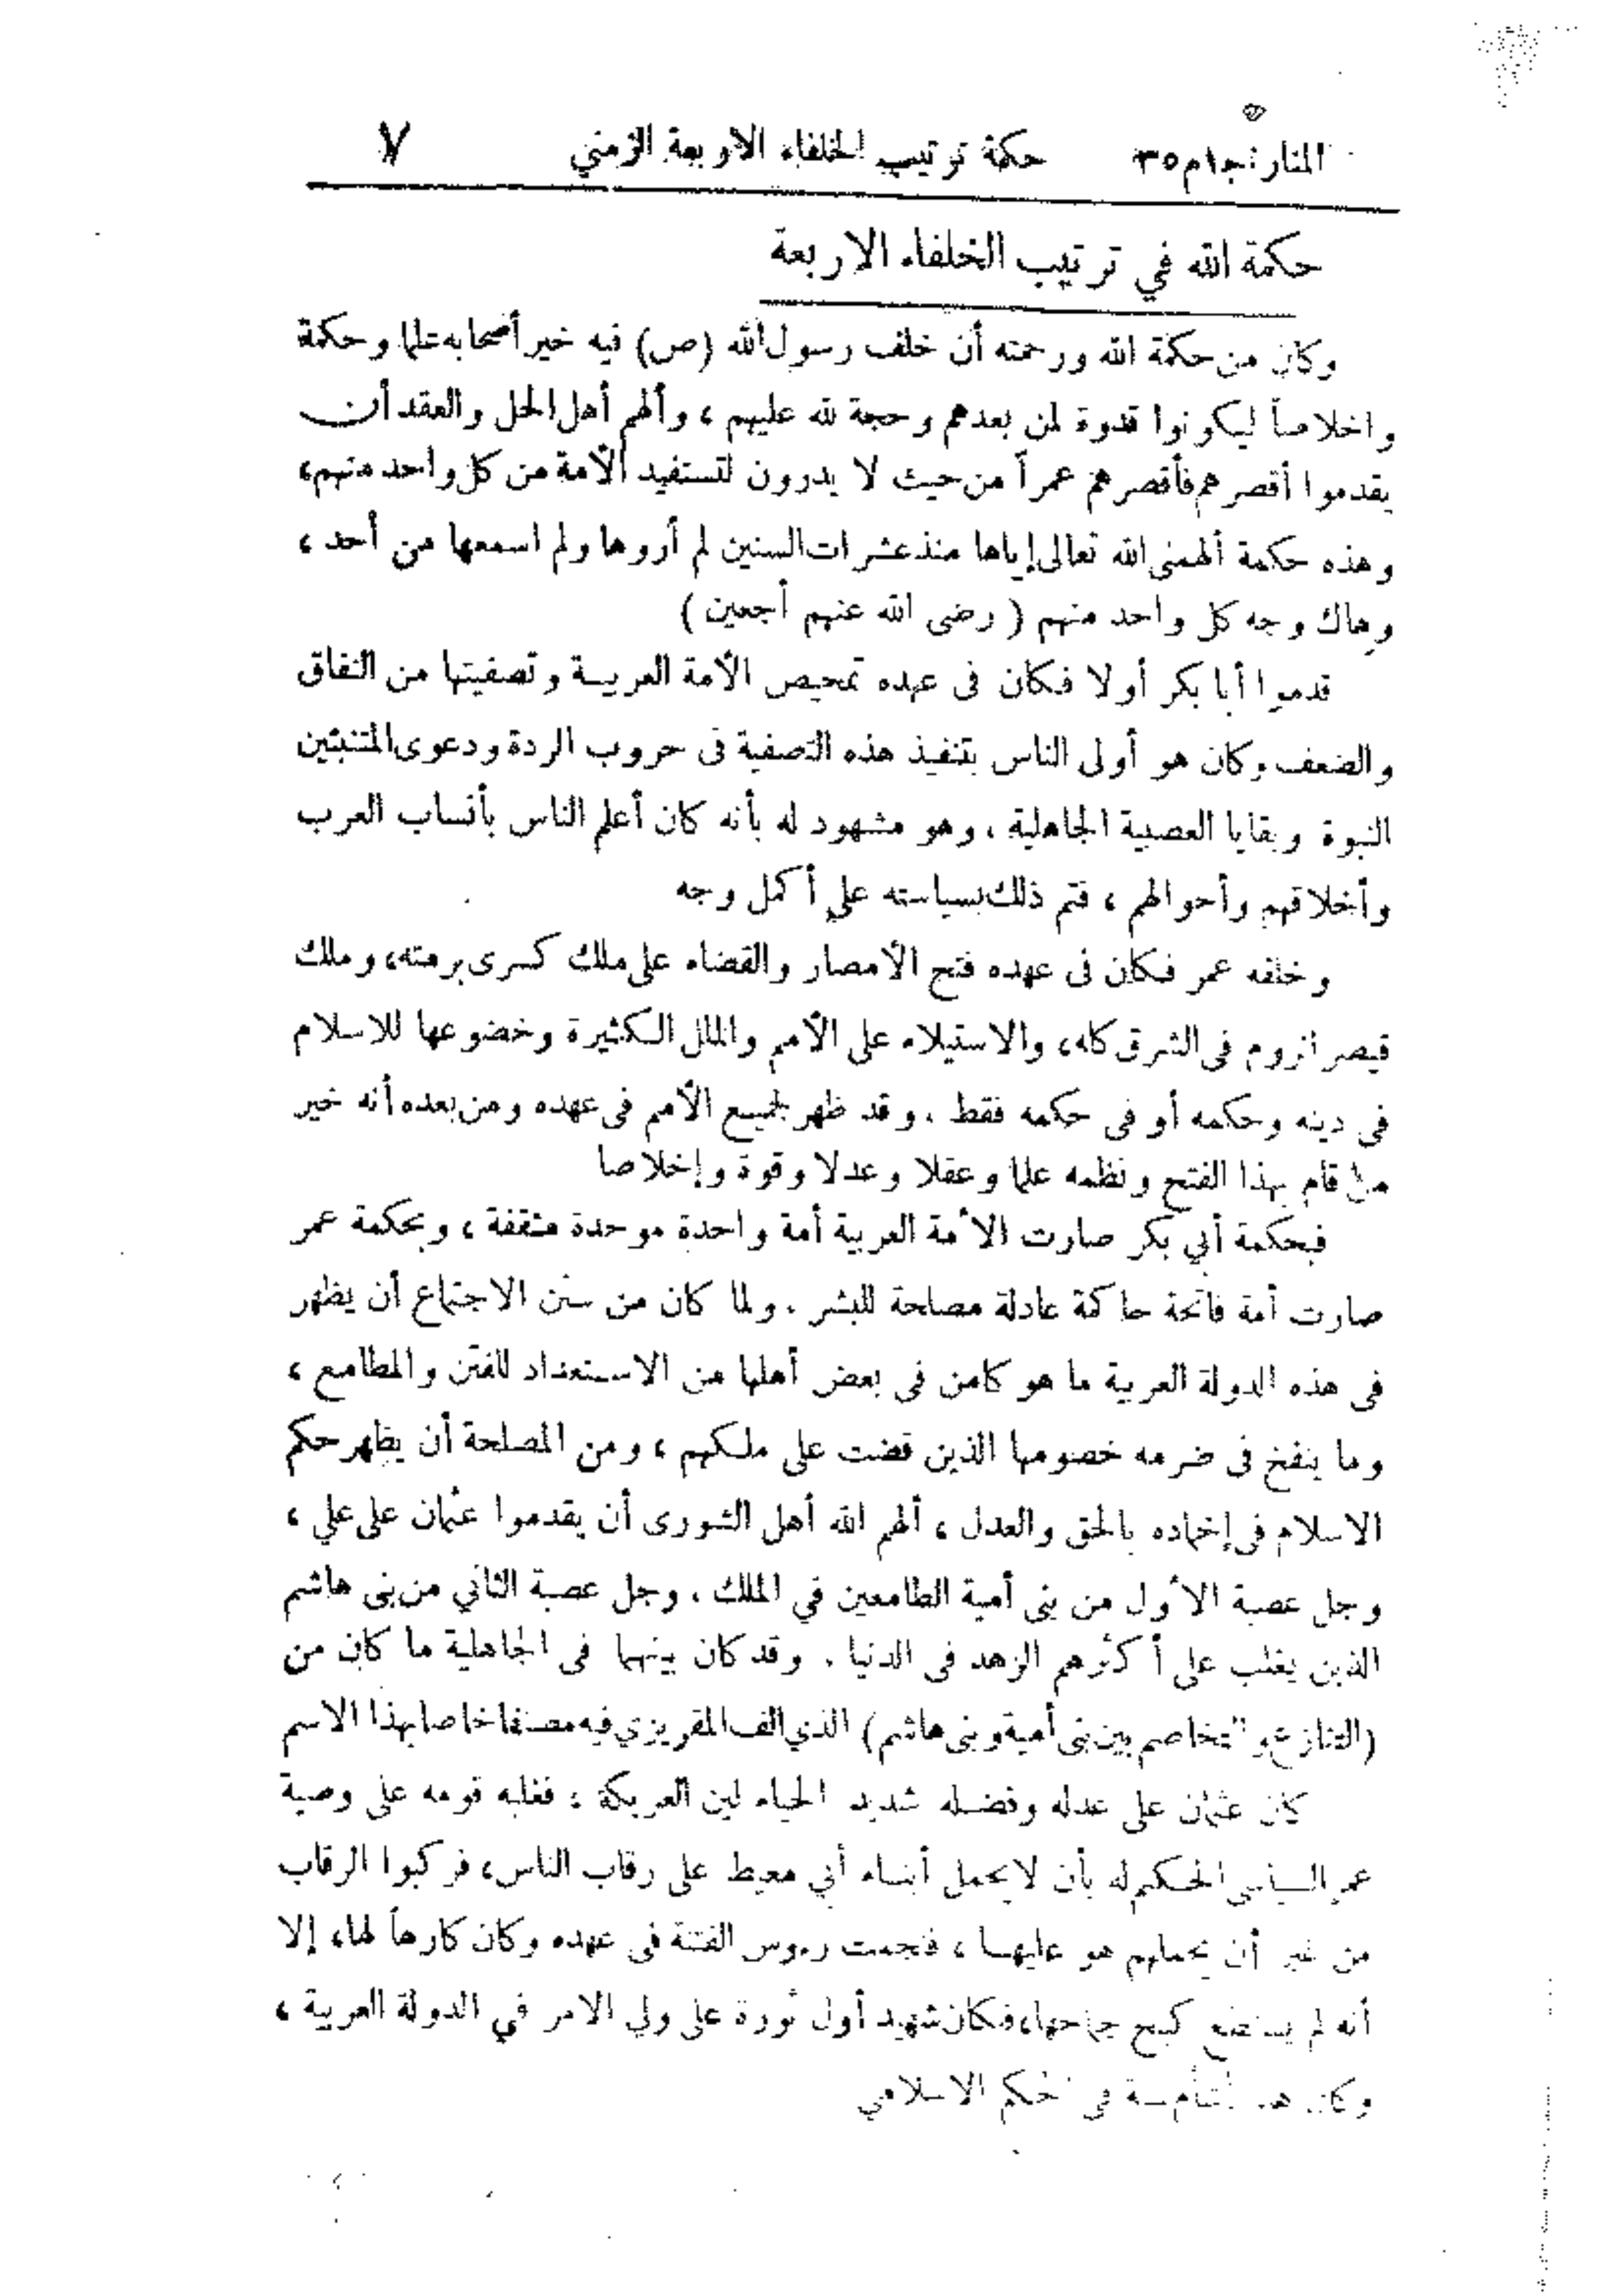 المنار: ج١م٣٥ حكمة ترتيب الخلفاء الاربعة الزمني ٧
حكمة الله في ترتيب الخلفاء الاربعة
وكان من حكمة الله ورحمته أن خلف رسول الله (ص) فيه خير أصحابه علما وحكمة
واخلاصاً ليكونوا قدوة لمن بعدهم وحجة لله عليهم ، وألهم أهل الحل والعقد أن
يقدموا أقصرهم فأقصرهم عمراً من حيث لا يدرون لتستفيد الأمة من كل واحد منهم،
وهذه حكمة ألهمنى الله تعالى إياها منذ عشرات السنين لم أروها ولم اسمعها من أحد ،
وهاك وجه كل واحد منهم ( رضى الله عنهم أجمعين )
قدموا أبا بكر أولا فكان فى عهده تمحيص الأمة العربية وتصفيتها من النفاق
والضعف وكان هو أولى الناس بتنفيذ هذه التصفية فى حروب الردة ودعوى المتنبئين
النبوة وبقايا العصبية الجاهلية ، وهو مشهود له بأنه كان أعلم الناس بأنساب العرب
وأخلاقهم وأحوالهم ، فتم ذلك بسياسته على أكمل وجه
وخلفه عمر فكان فى عهده فتح الأمصار والقضاء على ملك كسرى برمته، وملك
قيصر الروم فى الشرق كله، والاستيلاء على الأمم والملل الكثيرة وخضوعها للاسلام
فى دينه وحكمه أو فى حكمه فقط . وقد ظهر لجميع الأمم فى عهده ومن بعده أنه خير
من قام بهذا الفتح ونظمه علما وعقلا وعدلا وقوة وإخلاصا
فبحكمة أبي بكر صارت الأمة العربية أمة واحدة موحدة مثقفة ، وبحكمة عمر
صارت أمة فاتحة حاكمة عادلة مصلحة للبشر . ولما كان من سنن الاجتماع أن يظهر
فى هذه الدولة العربية ما هو كامن فى بعض أهلها من الاستعداد للفتن والمطامع ،
وما ينفخ فى ضرمه خصومها الذين قضت على ملكهم ، ومن المصلحة أن يظهر حكم
الاسلام فى إخماده بالحق والعدل ، ألهم الله أهل الشورى أن يقدموا عثمان على علي ،
وجل عصبة الأول من بنى أمية الطامعين في الملك ، وجل عصبة الثاني من بنى هاشم
الذين يغلب على أكثرهم الزهد فى الدنيا . وقد كان بينهما فى الجاهلية ما كان من
(التنازع والتخاصم بين بنى أمية وبنى هاشم) الذي الف المقريزي فيه مصنفا خاصا بهذا الاسم
كان عثمان على عدله وفضله شديد الحياء لين العريكة ، فغلبه قومه على وصية
عمر السياسى الحكيم له بأن لا يحمل أبناء أبي معيط على رقاب الناس، فركبوا الرقاب
من غير أن يحملهم هو عليها ، فنجمت رءوس الفتنة فى عهده وكان كارهاً لها، إلا
أنه لم يستطع كبح جماحها، فكان شهيد أول ثورة على ولي الامر في الدولة العربية ،
وكان في الحكم الاسلامي